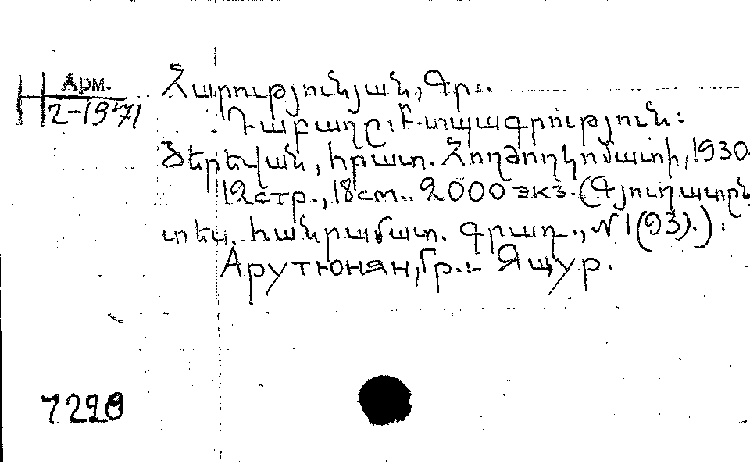 Н Арм.
2-1971
Հարությունյան, Գր.
Դաբաղը: Բ տպագրություն:
Յերեվան, հրատ. Հողժողկոմատի, 1930
12 стр., 18 см. 2000 экз. (Գյուղատըն
տես. հանրամատ. գրադ., № 1(93).).
Арутюнян, Гр. - Ящур.
7228